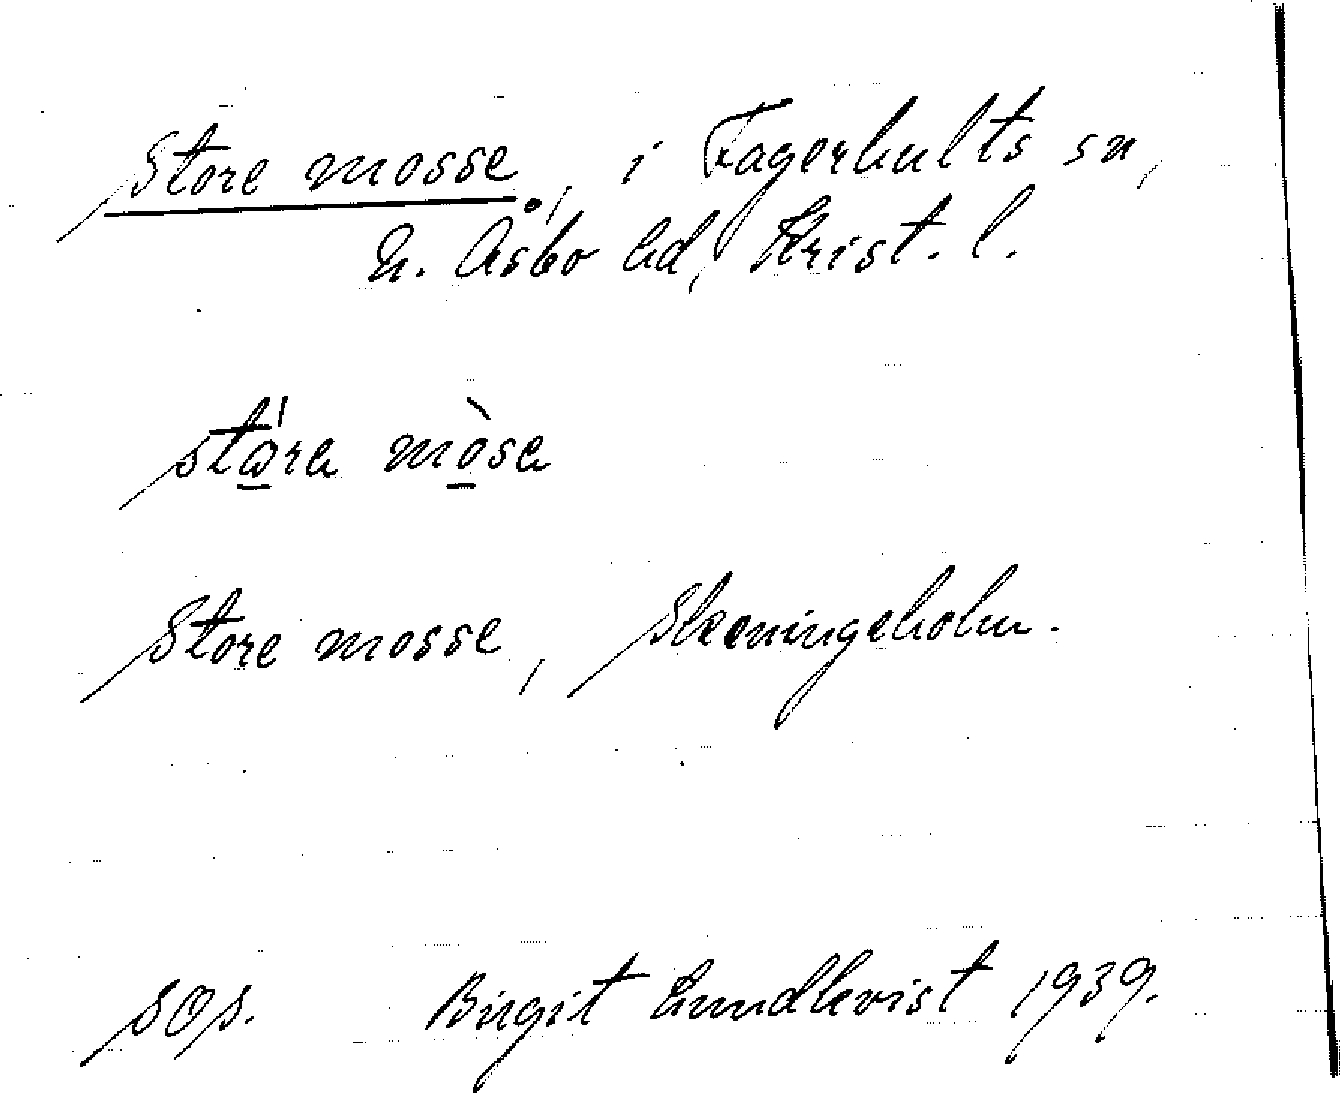 Store mosse, i Fagerhults sn,
N. Åsbo hd, Krist. l.
Store mosse, Skeningeholm.
SOs. Birgit Lundkvist 1939.